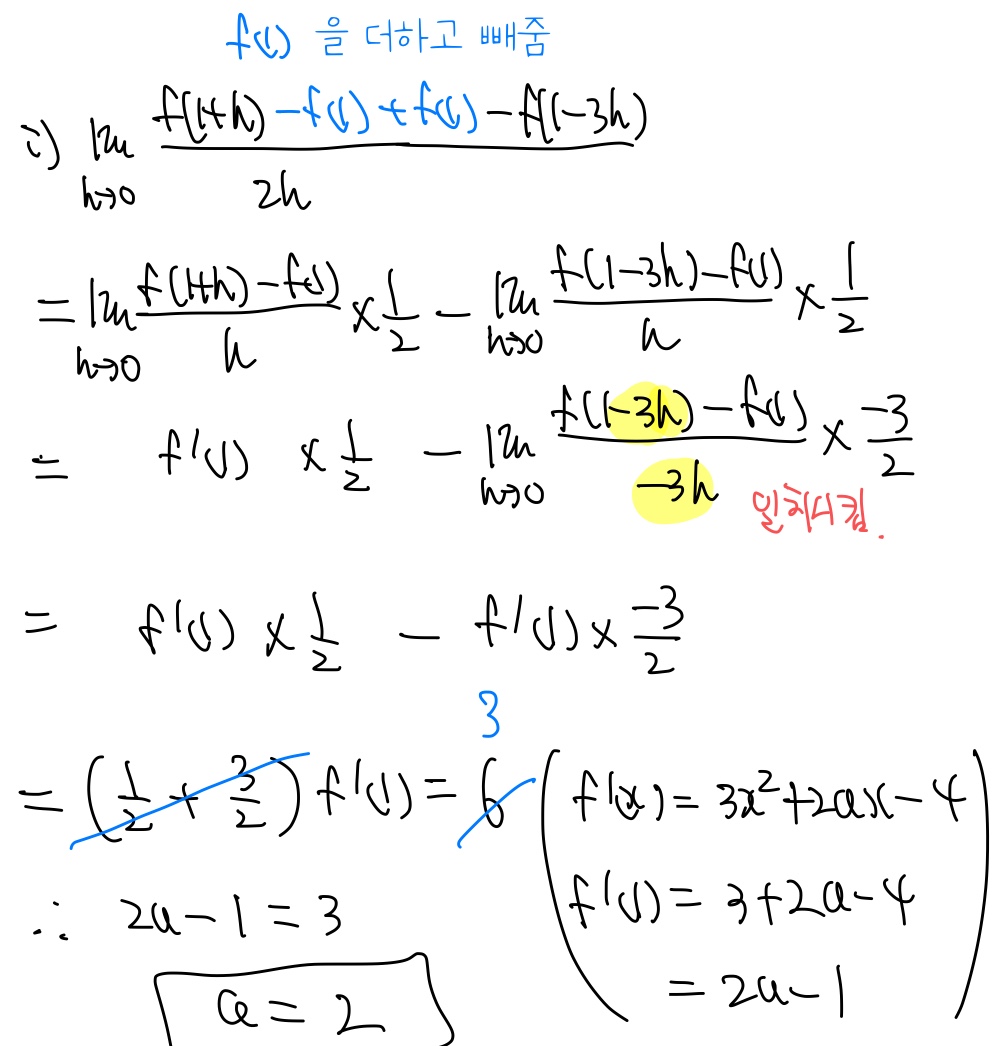 f(1) 을 더하고 빼줌
i) lim h→0 (f(1+h) -f(1) + f(1) - f(1-3h)) / 2h
= lim h→0 (f(1+h)-f(1)) / h × 1/2 - lim h→0 (f(1-3h)-f(1)) / h × 1/2
= f'(1) × 1/2 - lim h→0 (f(1-3h)-f(1)) / -3h × -3/2
일치시킴.
= f'(1) × 1/2 - f'(1) × -3/2
3
= (1/2 + 3/2) f'(1) = 6
∴ 2a-1=3
a=2
(f'(x) = 3x²+2ax-4
f'(1) = 3+2a-4
= 2a-1)